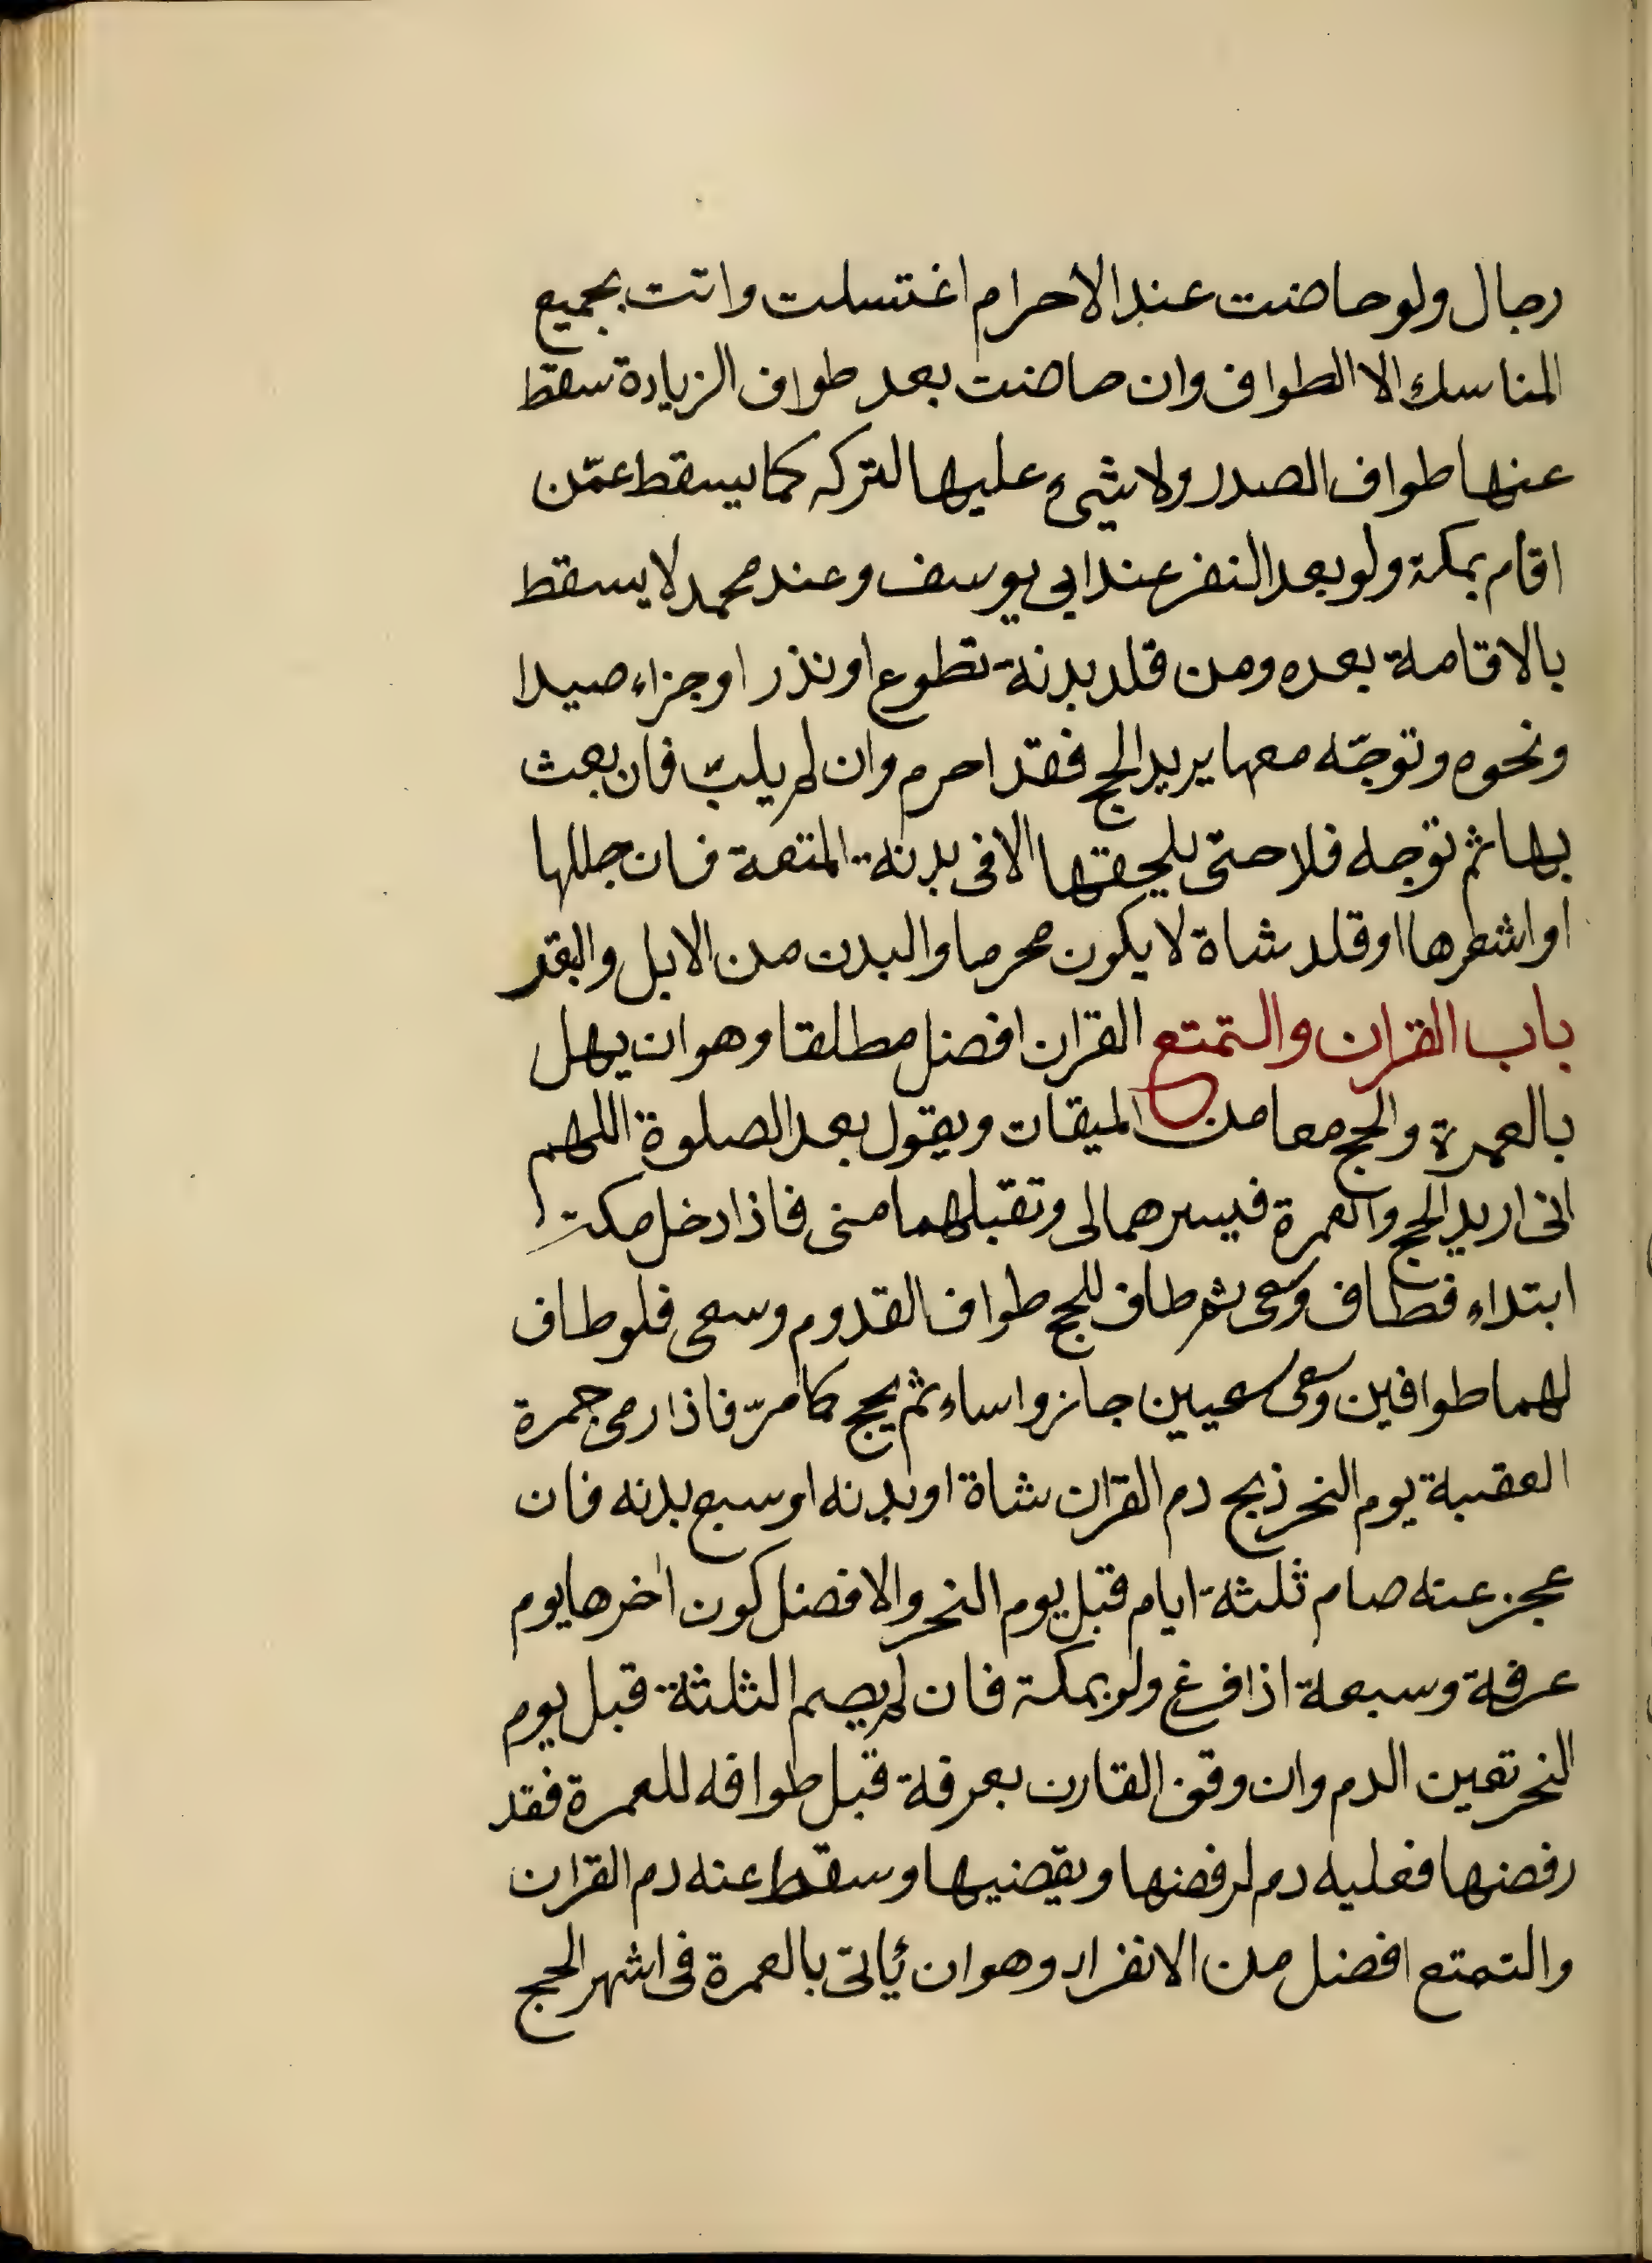 رجال ولو حاضت عند الاحرام اغتسلت واتت بجميع
المناسك الا الطواف وان حاضت بعد طواف الزيارة سقط
عنها طواف الصدر ولا شيء عليها لتركه كما يسقط عمّن
اقام بمكة ولو بعد النفر عند ابي يوسف وعند محمد لا يسقط
بالاقامة بعده ومن قلد بدنة تطوع او نذر او جزاء صيدا
ونحوه وتوجّه معها يريد الحج فقد احرم وان لم يلبّ فان بعث
بها ثم توجه فلا حتى يلحقها الا في بدنة المتعة فان جللها
او اشعرها او قلد شاة لا يكون محرما والبدن من الابل والبقر
باب القران والتمتع القران افضل مطلقا وهو ان يهل
بالعمرة والحج معا من الميقات ويقول بعد الصلوة اللهم
انى اريد الحج والعمرة فيسرهما لى وتقبلهما منى فاذا دخل مكة
ابتداء فطاف وسعى ثم طاف للحج طواف القدوم وسعى فلو طاف
لهما طوافين وسعى سعيين جاز واساء ثم يحج كما مرّ فاذا رمى جمرة
العقبة يوم النحر ذبح دم القران شاة او بدنه او سبع بدنه فان
عجز عنه صام ثلثة ايام قبل يوم النحر والافضل كون اخرها يوم
عرفة وسبعة اذا فرغ ولو بمكة فان لم يصم الثلثة قبل يوم
النحر تعين الدم وان وقف القارن بعرفة قبل طوافه للعمرة فقد
رفضها فعليه دم لرفضها ويقضيها وسقط عنه دم القران
والتمتع افضل من الانفراد وهو ان يأتى بالعمرة فى اشهر الحج